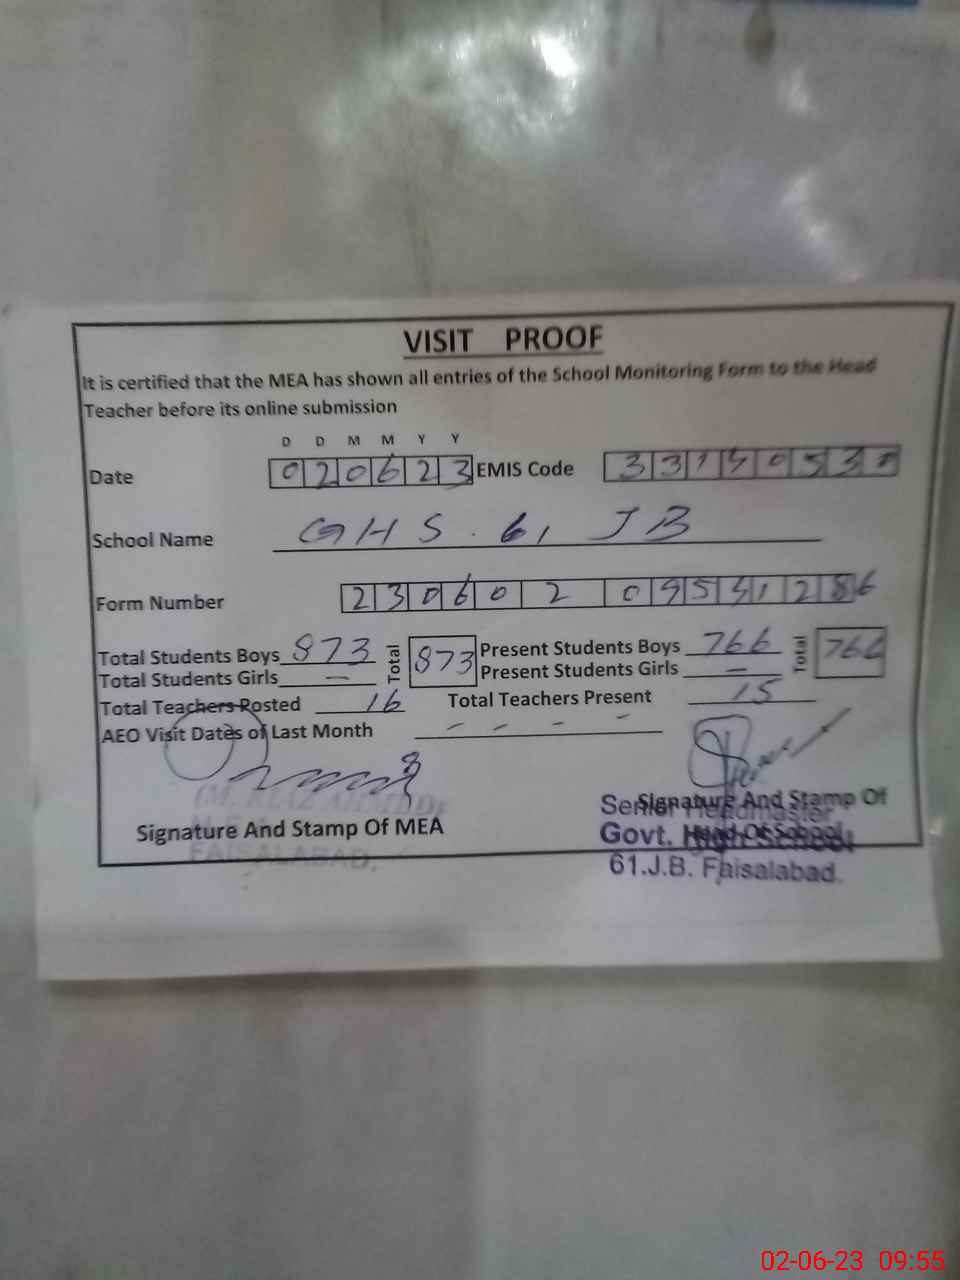 VISIT PROOF
It is certified that the MEA has shown all entries of the School Monitoring Form to the Head
Teacher before its online submission
D D M M Y Y
Date 020623 EMIS Code
School Name GHS. 61 JB
Form Number
Total Students Boys 873 Total 873 Present Students Boys 766 Total 766
Total Students Girls - Present Students Girls -
Total Teachers Posted 16 Total Teachers Present 15
AEO Visit Dates of Last Month - - - -
Signature And Stamp Of MEA
FAISALABAD.
Signature And Stamp Of
Head Of School
Senior Headmaster
Govt. High School
61.J.B. Faisalabad.
02-06-23 09:55